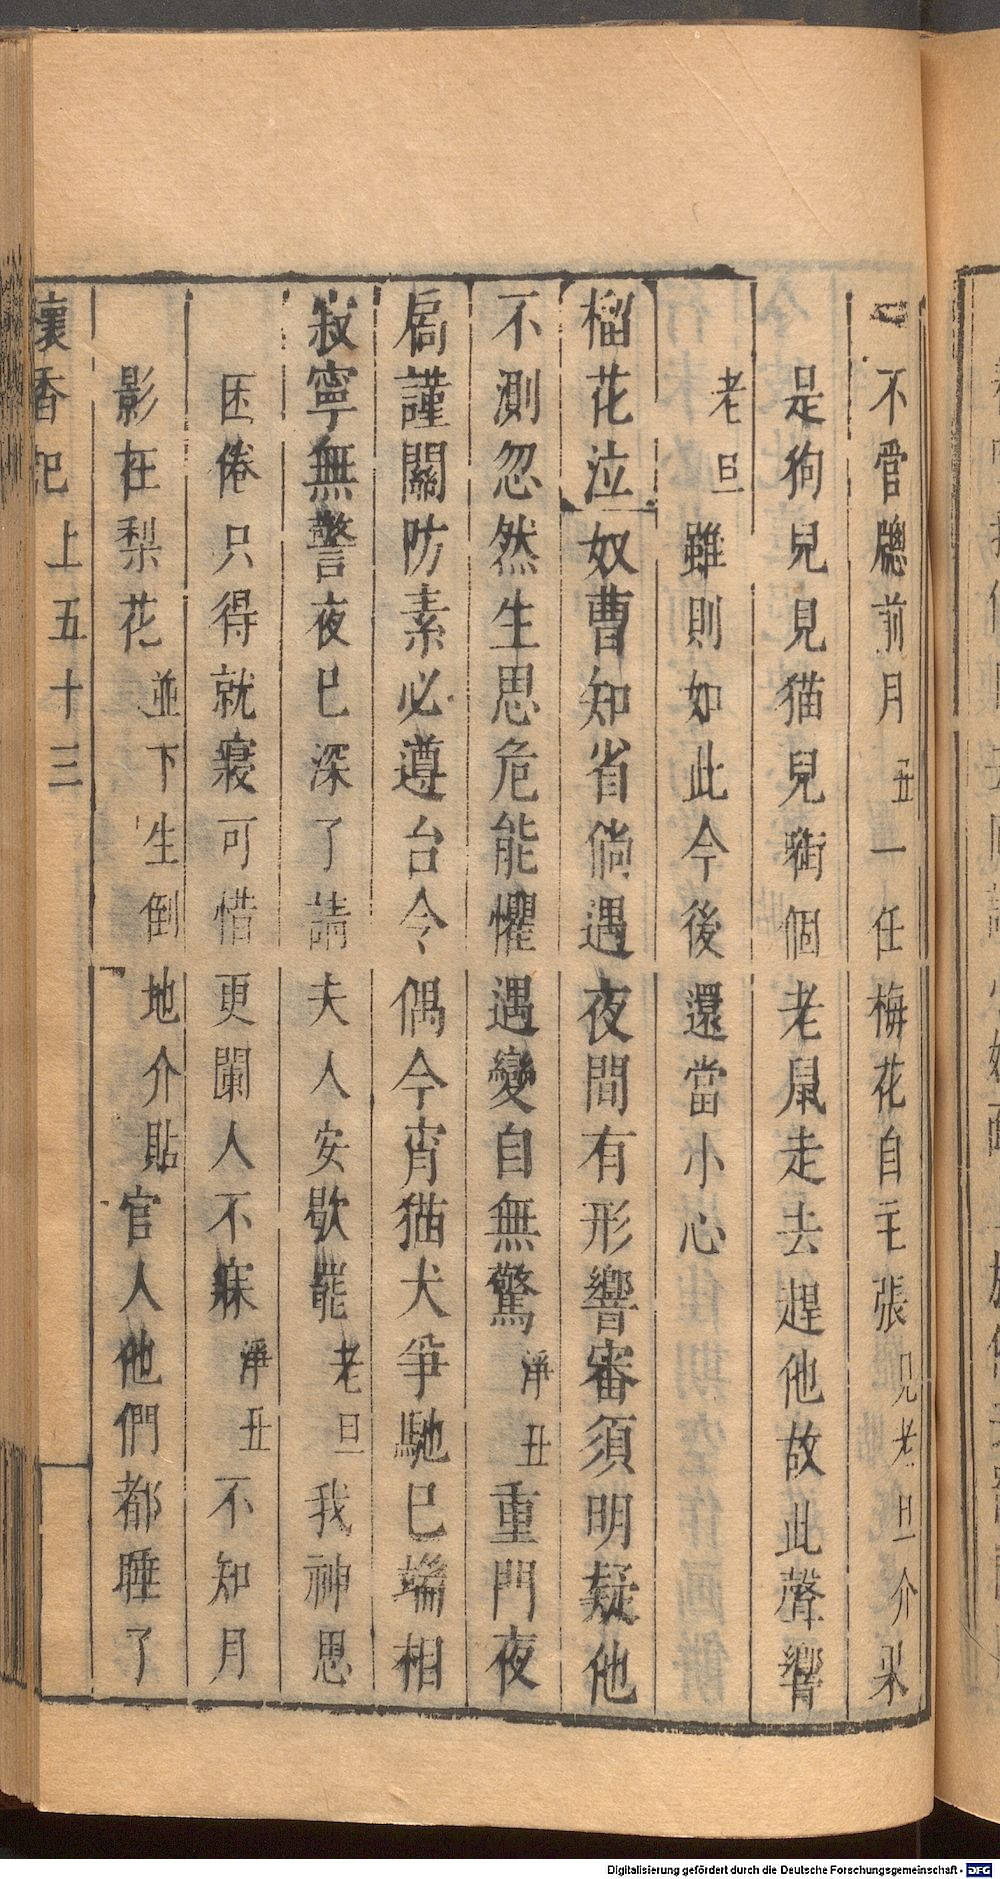 不管牕前月丑一任梅花自主張見老旦介果
是狗兒見猫兒啣個老鼠走去趕他故此聲響
老旦雖則如此今後還當小心
榴花泣奴曹知省倘遇夜間有形響審須明疑他
不測忽然生思危能懼遇變自無驚淨丑重門夜
扃謹關防素必遵台令偶今宵猫犬爭馳巳端相
寂寧無警夜巳深了請夫人安歇罷老旦我神思
困倦只得就寢可惜更闌人不寐淨丑不知月
影在梨花並下生倒地介貼官人他們都睡了
懷香記上五十三
Digitalisierung gefördert durch die Deutsche Forschungsgemeinschaft - DFG